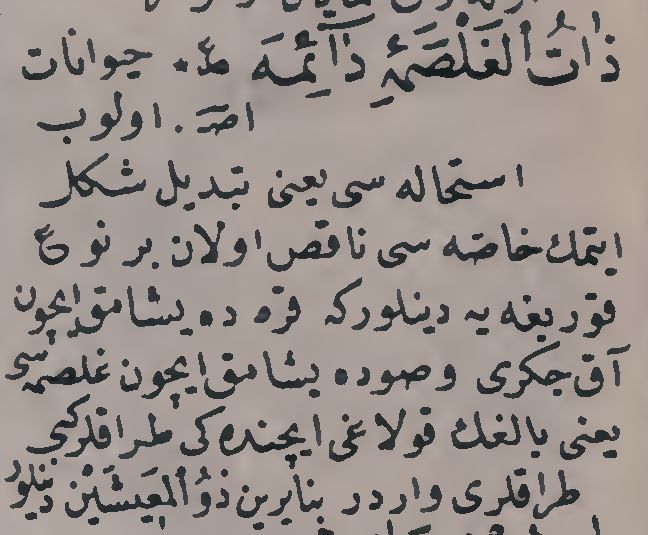 ذَاتُ الْغَلْصَمَةِ دَآئِمَه طع٠ حيوانات
اصر. اولوب
استحاله سی یعنی تبدیل شكل
ایتمك خاصه سی ناقص اولان بر نوع
قوربغه یه دینلوركه قره ده یشامق ایچون
آق جكری وصوده یشامق ایچون غلصمه سی
یعنی بالغك قولاغی ایچنده كی طراقلر كبی
طراقلری واردر بنابرین ذُو الْمَعِيشَتَيْن دینلور